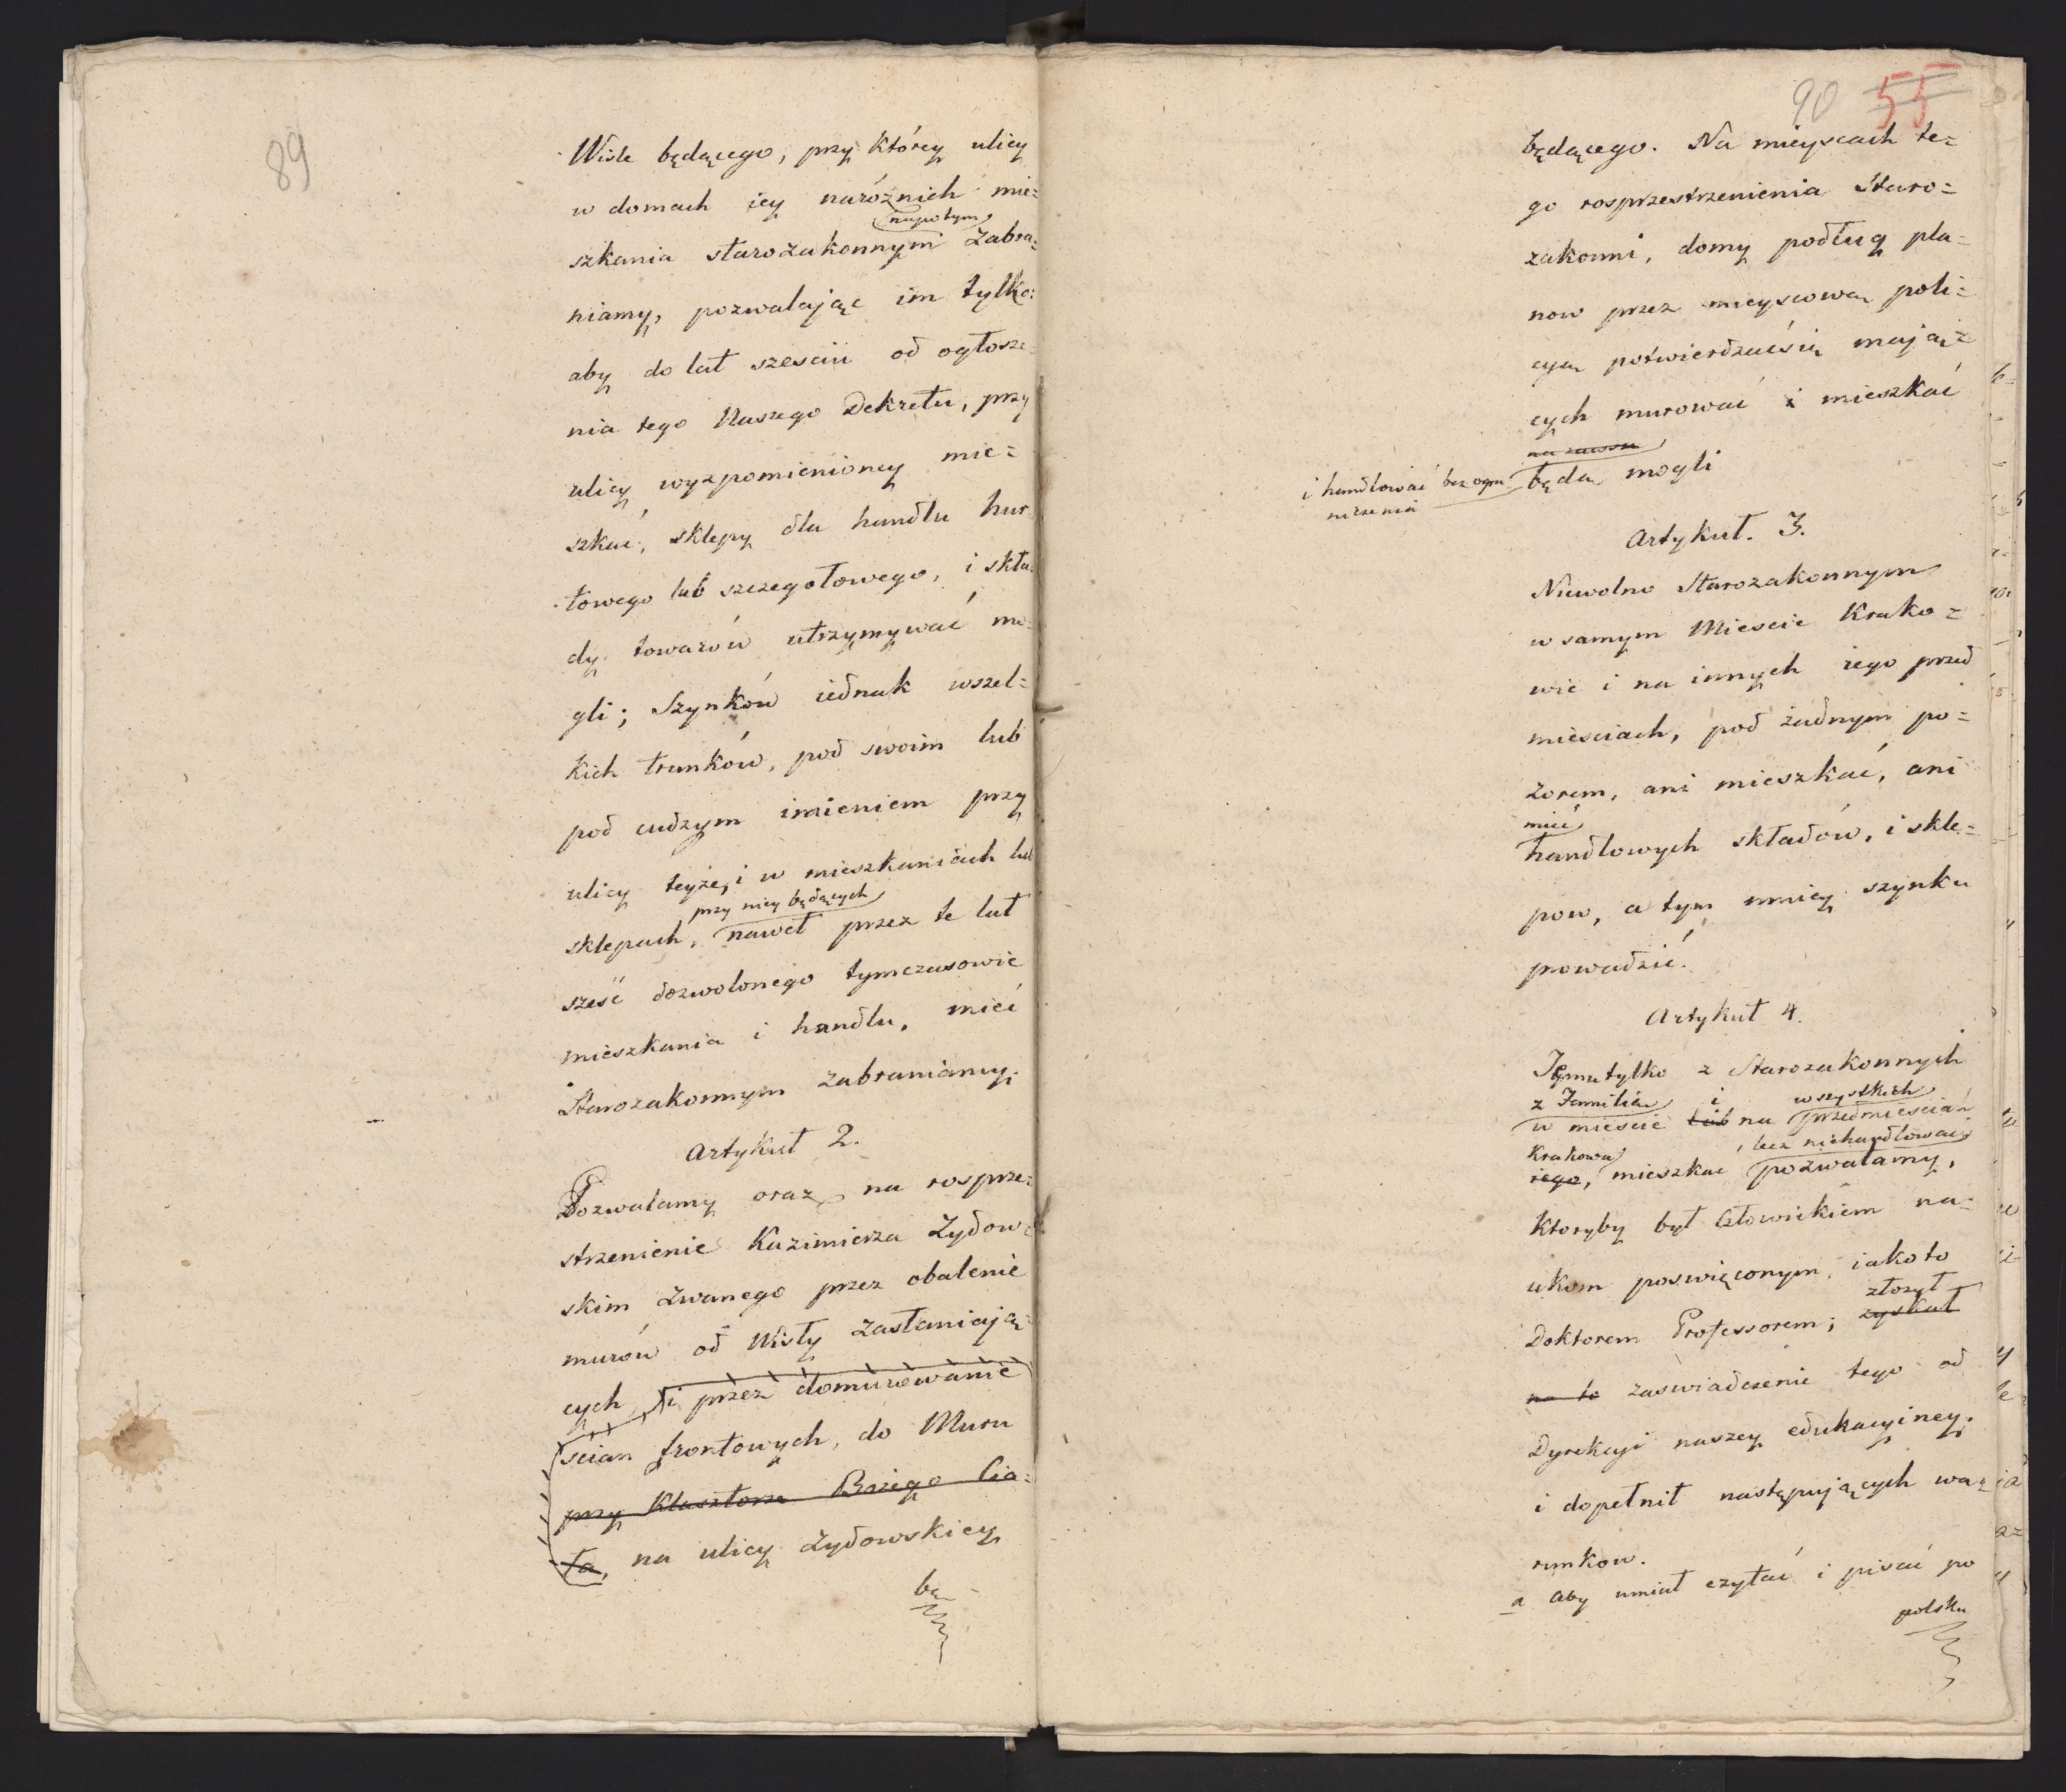 89
Wiśle będącego, przy którey ulicy
w domach iey naróżnich mie=
napotym
szkania starozakonnym zabra=
niamy, pozwalając im tylko:
aby do lat szesciu od ogłosze=
nia tego Naszego Dekretu, przy
ulicy wyzpomienioney mie=
szkać, sklepy dla handlu hur=
towego lub szczegołowego, i skła=
dy towarów utrzymywać mo=
gli; Szynków iednak wszel=
kich trunków, pod swoim lub
pod cudzym imieniem przy
ulicy teyże, i w mieszkaniach lub
przy niey będących
sklepach, nawet przez te lat
sześć dozwolonego tymczasowie
mieszkania i handlu, mieć
Starozakonnym zabraniamy.
Artykuł 2.
Pozwalamy oraz na rosprze=
strzenienie Kazimierza Żydow=
skim zwanego przez obalenie
murów od Wisły zasłaniają=
cych, i przez domurowanie
scian frontowych, do Muru
przy Klasztorze Bożego Cia=
ła, na ulicy Żydowskiey
bę=
90 55
będącego. Na mieyscach te=
go rosprzestrzenienia Staro=
zakonni, domy podług pla=
now przez mieyscową poli=
cyą potwierdzaćsię mają=
cych murować i mieszkać
na zawsze
będą mogli
i handlować bez ogra=
niczenia
Artykuł. 3.
Niewolno Starozakonnym
w samym Miescie Krako=
wie i na innych iego przed
miesciach, pod żadnym po=
zorem, ani mieszkać, ani
mieć
handlowych składów, i skle=
pow, a tym mniey szynku
prowadzić.
Artykuł 4.
Temu tylko z Starozakonnych
z Familią i wszystkich
w miescie lub na przedmiesciach
Krakowa , lecz niehandlować
iego, mieszkac pozwalamy,
Ktoryby był Człowiekiem na=
ukom poswięconym, iako to
złożył
Doktorem Professorem; zyskał
na to zaswiadczenie tego od
Dyrekcyi naszey edukacyiney.
i dopełnił następujących wa=
runkow.
a aby umiał czytać i pisać po
polsku